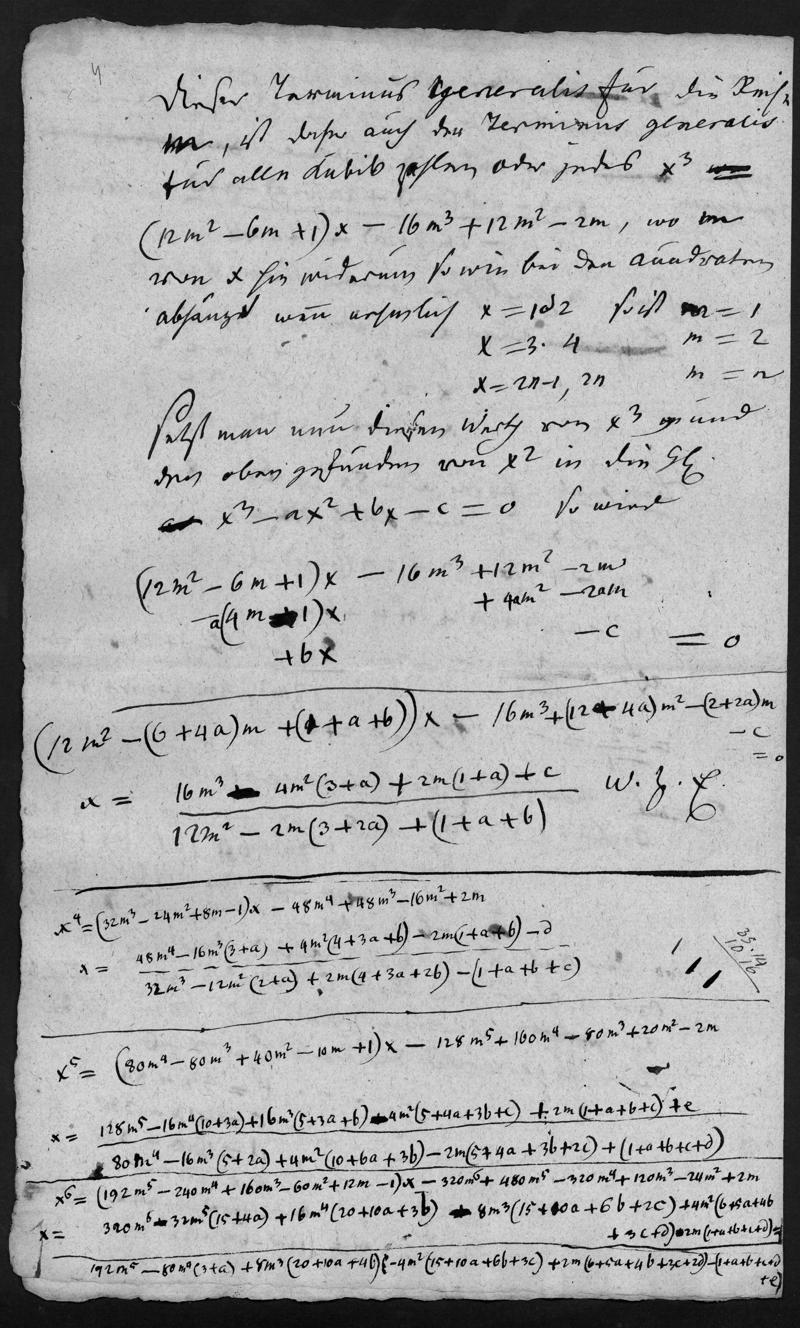 4
Dieser Terminus generalis für die Reihe
m, ist daher auch der Terminus generalis
für alle Kubikzahlen oder jedes x³
(12m² – 6m + 1)x – 16m³ + 12m² – 2m, wo m
von x hinwiderum so wie bei den Quadraten
abhängt wenn nehmlich x = 1 d 2 so ist m = 1
x = 3. 4 m = 2
x = 2n-1, 2n m = n
Setzt man nun diesen Werth von x³ und
den oben gefunden von x² in die Gl.
x³ – ax² + bx – c = 0 so wird
(12m² – 6m + 1)x – 16m³ + 12m² – 2m
–a(4m – 1)x + 4am² – 2am
+bx – c = 0
(12m² – (6+4a)m + (1+a+b))x – 16m³ + (12+4a)m² – (2+2a)m
– c
= 0
x = 16m³ – 4m²(3+a) + 2m(1+a) + c w. z. E.
12m² – 2m(3+2a) + (1+a+b)
x⁴ = (32m³ – 24m² + 8m – 1)x – 48m⁴ + 48m³ – 16m² + 2m
x = 48m⁴ – 16m³(3+a) + 4m²(4+3a+b) – 2m(1+a+b) – d
32m³ – 12m²(2+a) + 2m(4+3a+2b) – (1+a+b+c)
x⁵ = (80m⁴ – 80m³ + 40m² – 10m + 1)x – 128m⁵ + 160m⁴ – 80m³ + 20m² – 2m
x = 128m⁵ – 16m⁴(10+3a) + 16m³(5+3a+b) – 4m²(5+4a+3b+c) + 2m(1+a+b+c) + e
80m⁴ – 16m³(5+2a) + 4m²(10+6a+3b) – 2m(5+4a+3b+2c) + (1+a+b+c+d)
x⁶ = (192m⁵ – 240m⁴ + 160m³ – 60m² + 12m – 1)x – 320m⁶ + 480m⁵ – 320m⁴ + 120m³ – 24m² + 2m
x = 320m⁶ – 32m⁵(15+4a) + 16m⁴(20+10a+3b) – 8m³(15+10a+6b+2c) + 4m²(6+5a+4b
+ 3c+d) – 2m(1+a+b+c+d) –
192m⁵ – 80m⁴(3+a) + 8m³(20+10a+4b) – 4m²(15+10a+6b+3c) + 2m(6+5a+4b+3c+2d) – (1+a+b+c+d
+e)